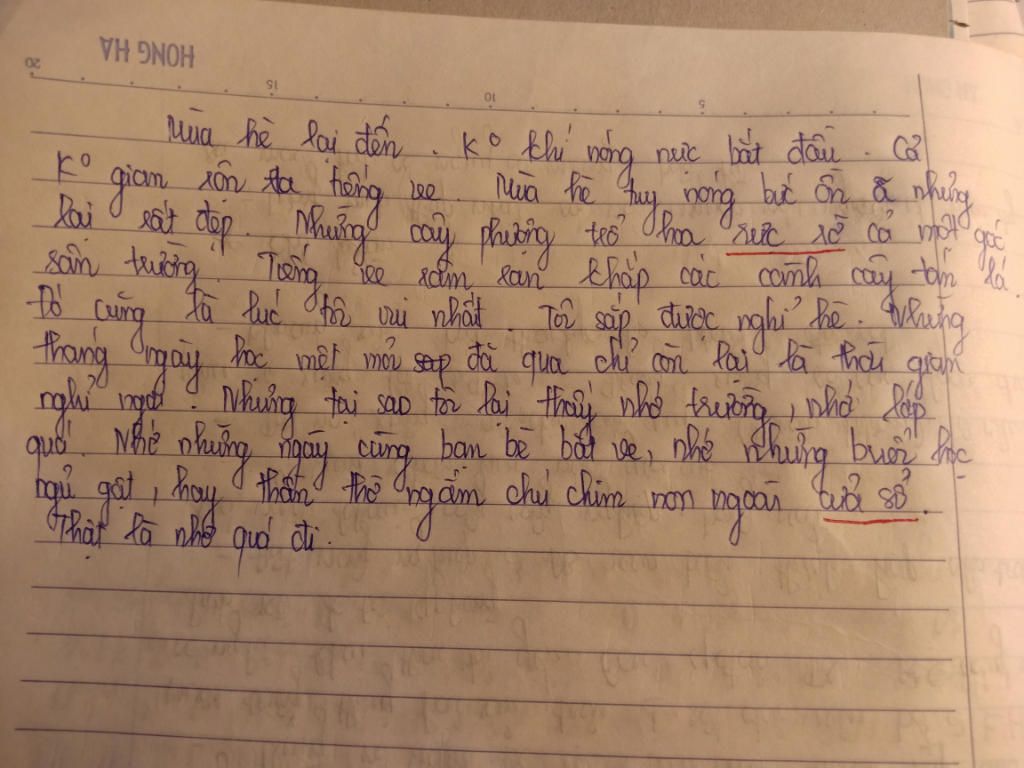 HONG HA
20 15 10 5
Mùa hè lại đến. K° khí nóng nực bắt đầu. Cả
K° gian rộn ta tiếng ve. Mùa hè tuy nóng bức ồn ã nhưng
lại rất đẹp. Những cây phượng trổ hoa rực rỡ cả một góc
sân trường. Tiếng ve râm ran khắp các cành cây tán lá.
Đó cũng là lúc tôi vui nhất. Tôi sắp được nghỉ hè. Những
tháng ngày học mệt mỏi đã qua chỉ còn lại là thời gian
nghỉ ngơi. Nhưng tại sao tôi lại thấy nhớ trường, nhớ lớp
quá. Nhớ những ngày cùng bạn bè bắt ve, nhớ những buổi học
ngủ gật, hay thẩn thơ ngắm chú chim non ngoài cửa sổ.
Thật là nhớ quá đi.